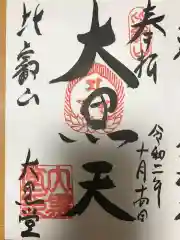 奉拝
令和二年十月十四日
大黒天
比叡山
大黒堂